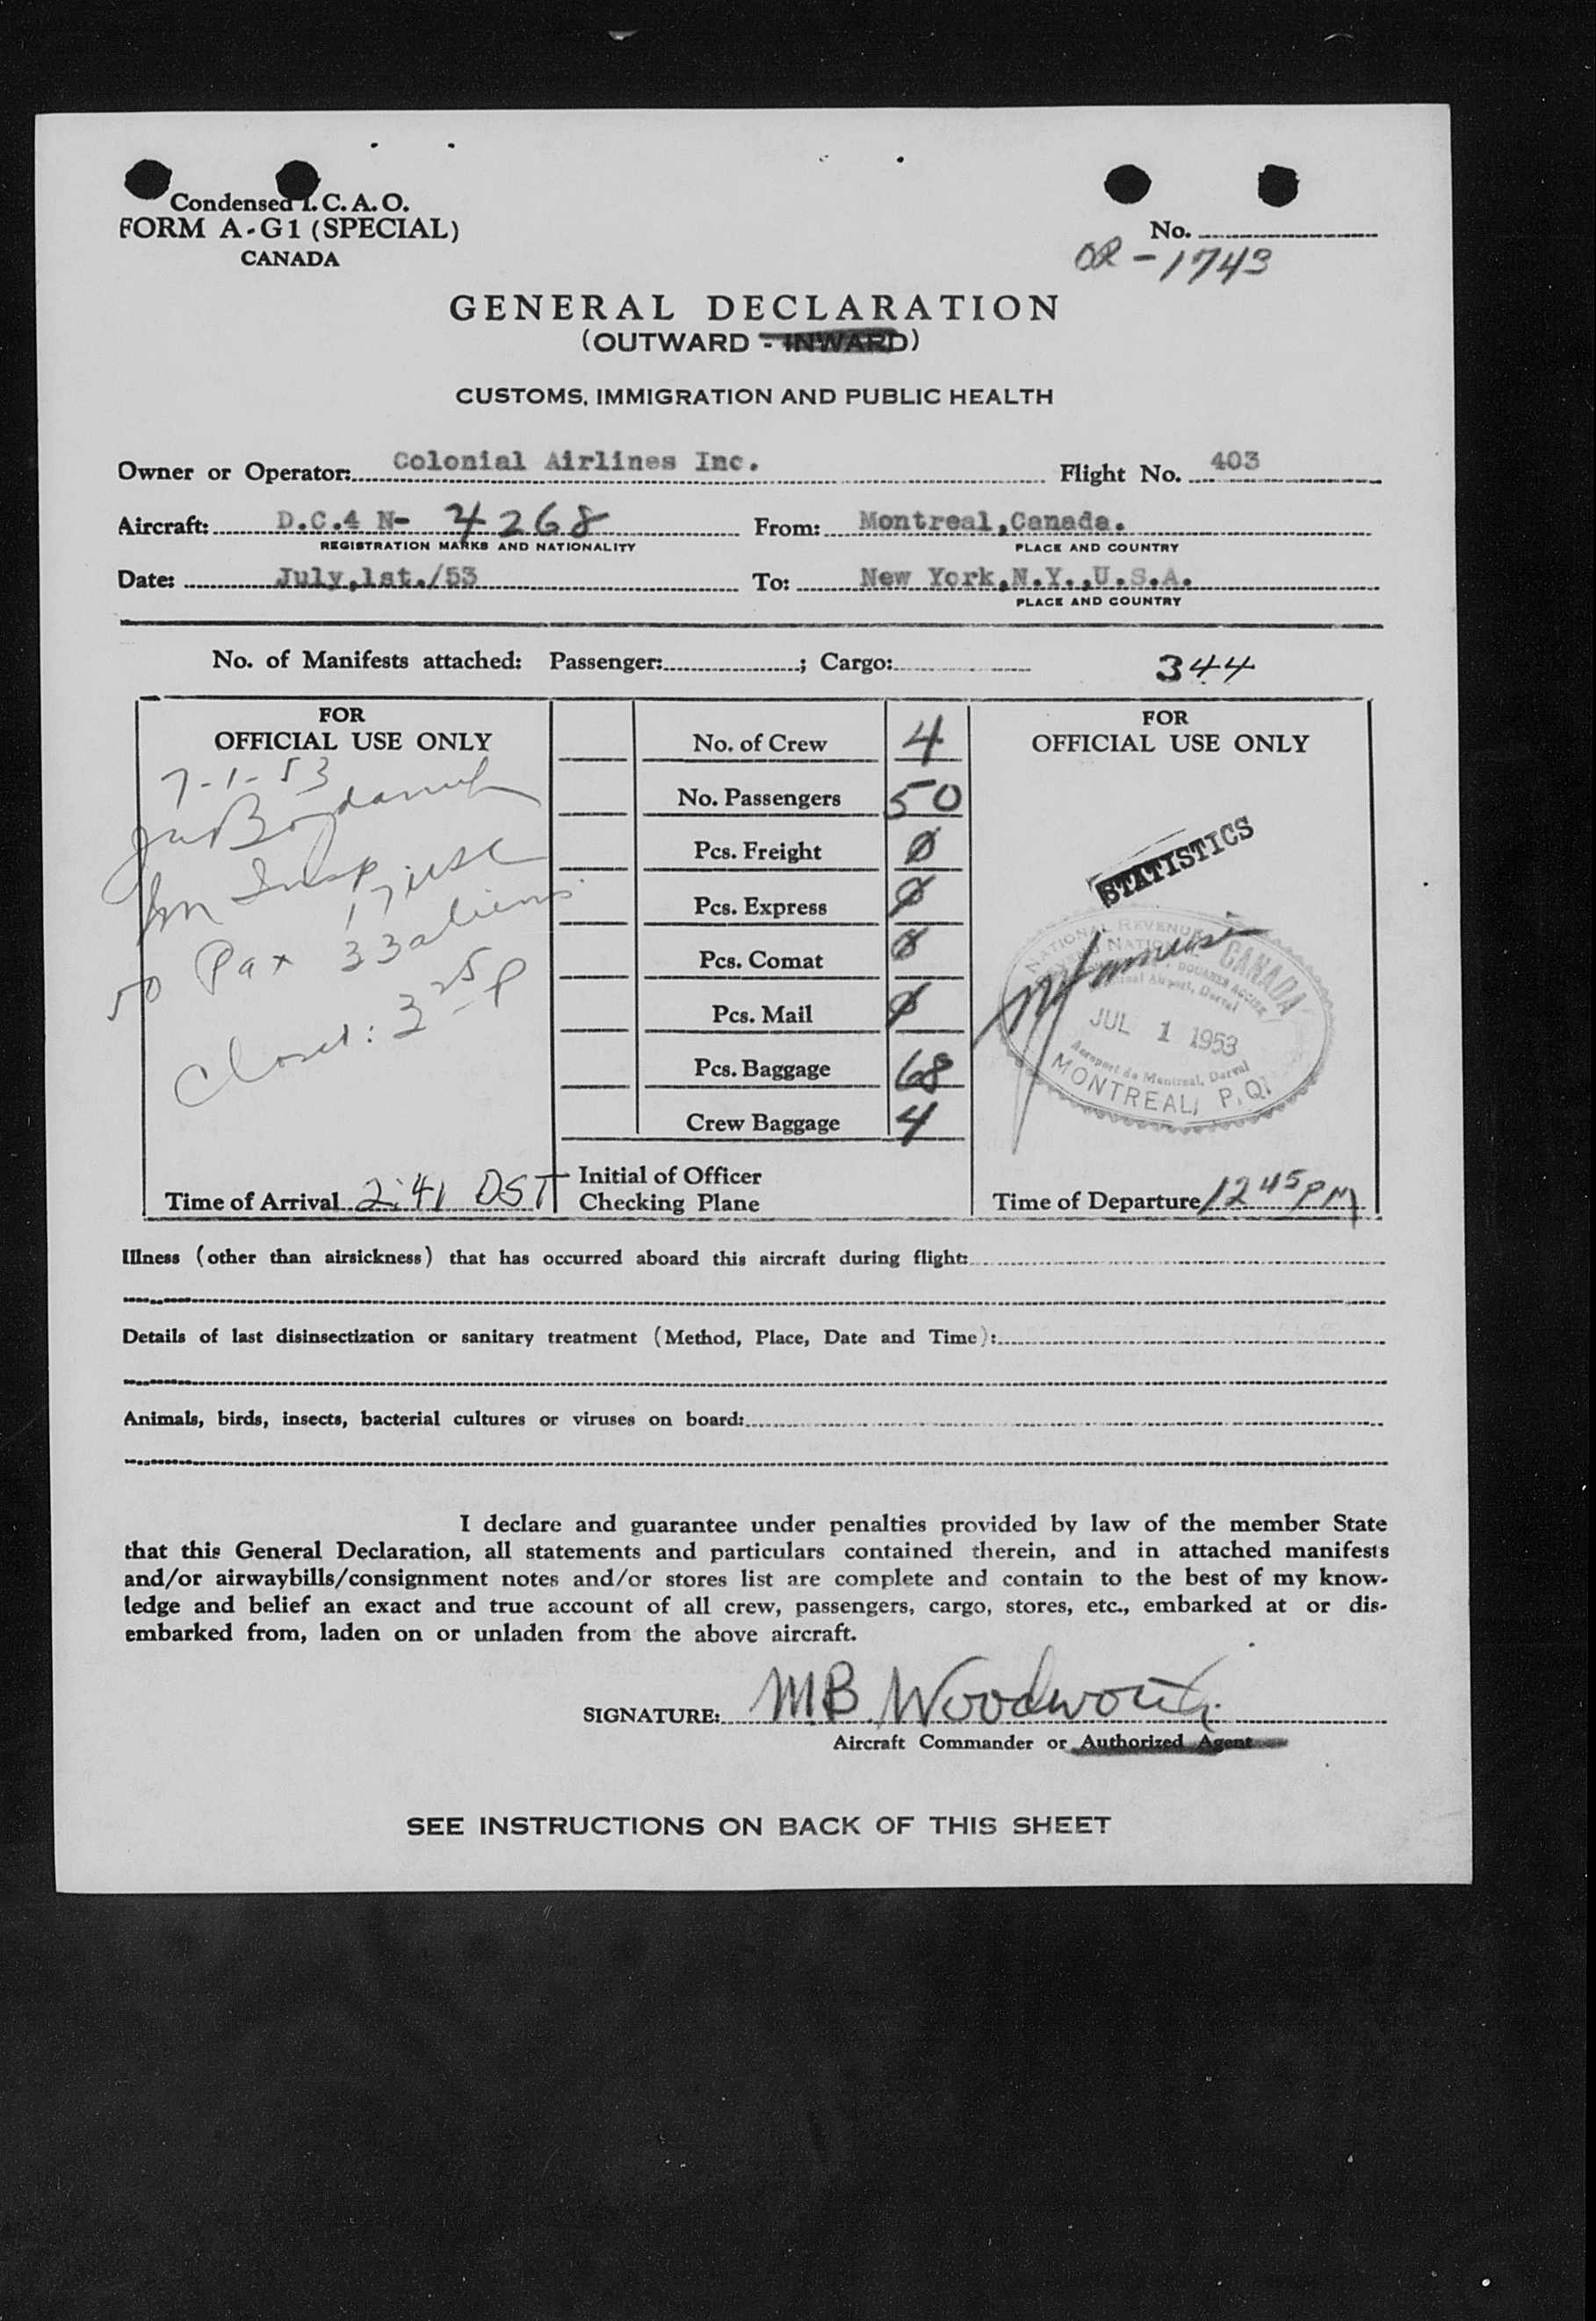 Condensed I. C. A. O.
FORM A-G1 (SPECIAL)
CANADA
No.
OR-1743
GENERAL DECLARATION
(OUTWARD - INWARD)
CUSTOMS, IMMIGRATION AND PUBLIC HEALTH
Owner or Operator: Colonial Airlines Inc. Flight No. 403
Aircraft: D.C.4 N- 4268 From: Montreal, Canada.
REGISTRATION MARKS AND NATIONALITY PLACE AND COUNTRY
Date: July,1st./53 To: New York,N.Y.,U.S.A.
PLACE AND COUNTRY
No. of Manifests attached: Passenger: ; Cargo: 344
FOR
OFFICIAL USE ONLY
7-1-53
Im Insp
17 USC
50 Pax 33 aliens
Closed: 3 25 P
Time of Arrival 2:41 DST
No. of Crew 4
No. Passengers 50
Pcs. Freight Ø
Pcs. Express Ø
Pcs. Comat Ø
Pcs. Mail Ø
Pcs. Baggage 68
Crew Baggage 4
Initial of Officer
Checking Plane
FOR
OFFICIAL USE ONLY
STATISTICS
NATIONAL REVENUE CANADA
JUL 1 1953
Aeroport de Montreal, Dorval
MONTREAL, P.Q.
Time of Departure 12 45 PM
Illness (other than airsickness) that has occurred aboard this aircraft during flight:
Details of last disinsectization or sanitary treatment (Method, Place, Date and Time):
Animals, birds, insects, bacterial cultures or viruses on board:
I declare and guarantee under penalties provided by law of the member State
that this General Declaration, all statements and particulars contained therein, and in attached manifests
and/or airwaybills/consignment notes and/or stores list are complete and contain to the best of my know-
ledge and belief an exact and true account of all crew, passengers, cargo, stores, etc., embarked at or dis-
embarked from, laden on or unladen from the above aircraft.
SIGNATURE: MB Woodworth
Aircraft Commander or Authorized Agent
SEE INSTRUCTIONS ON BACK OF THIS SHEET